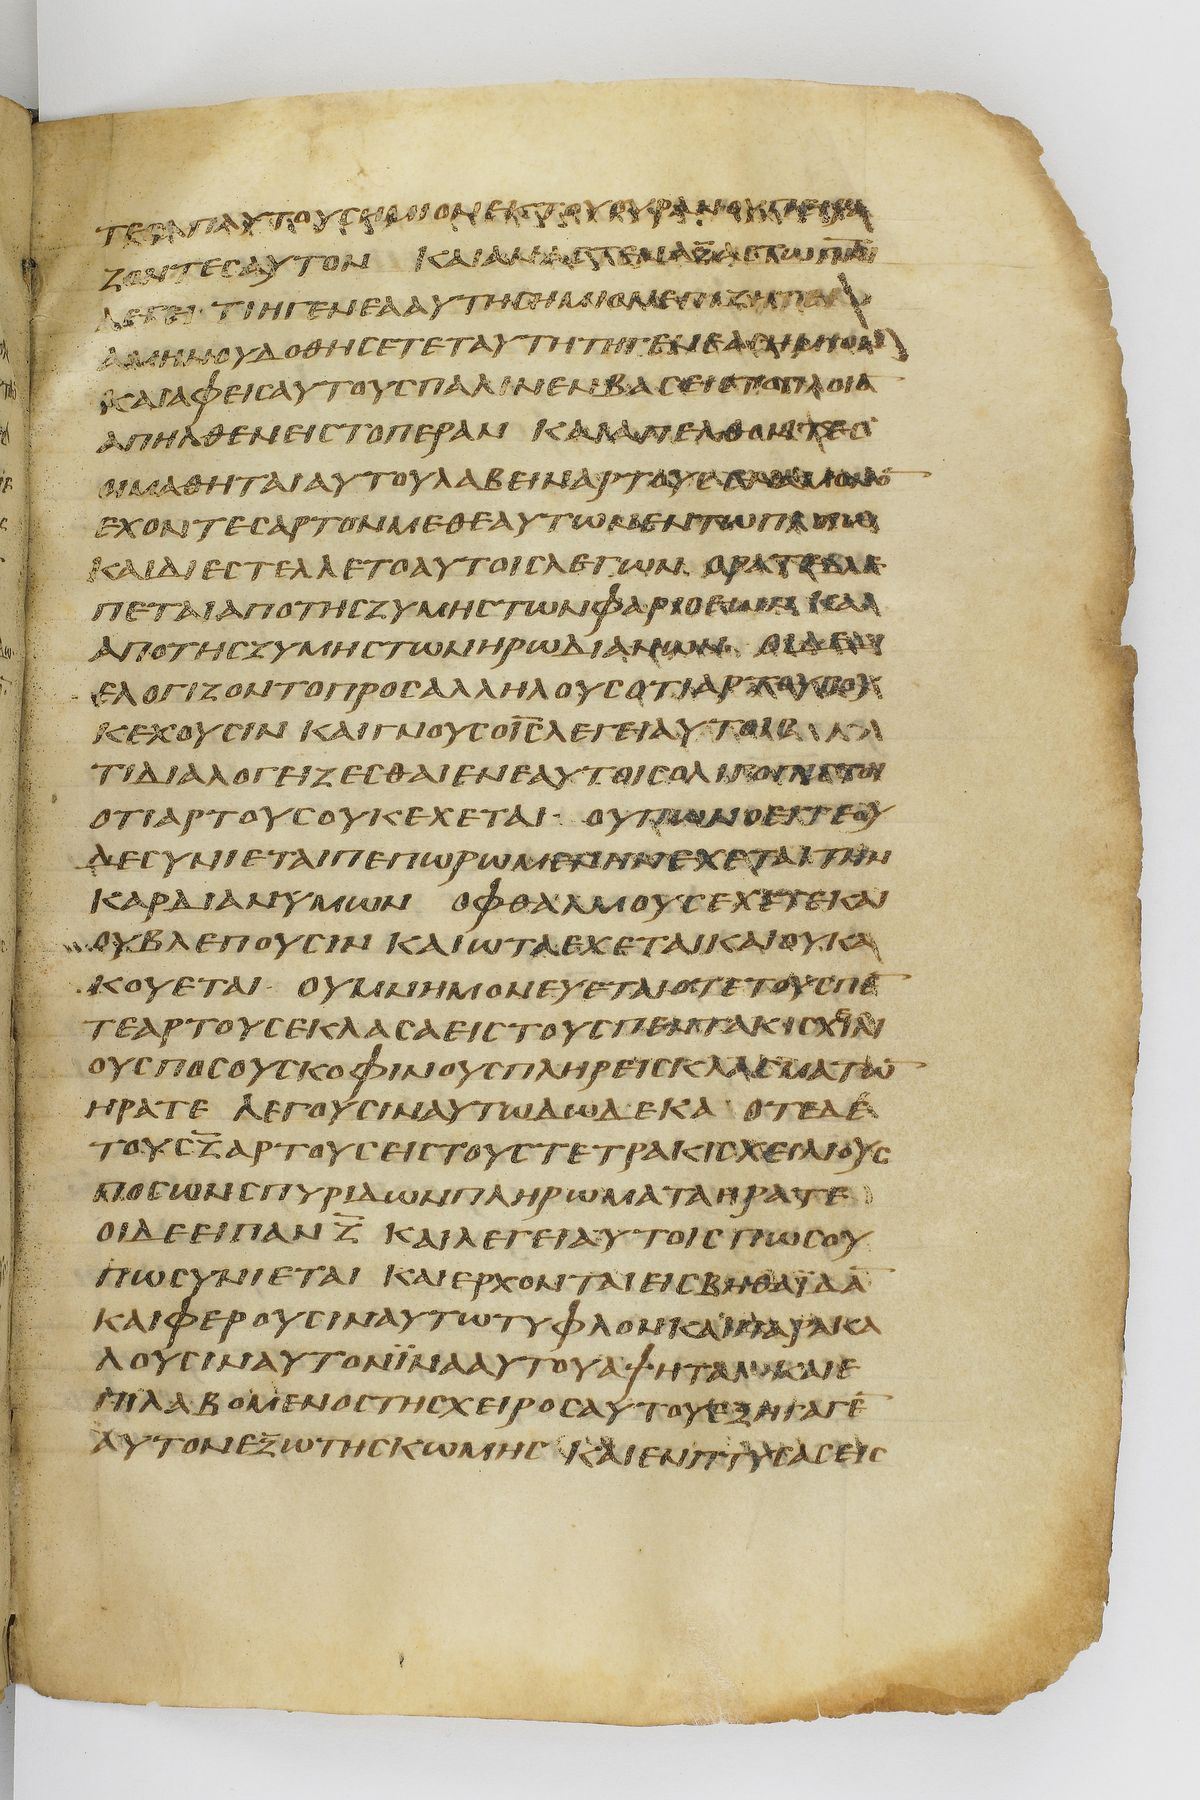 ΤΕϹΑΠΑΥΤΟΥϹΗΜΙΟΝΕΚΤΟΥΟΥΡΑΝΟΥΠΙΡΑ
ΖΟΝΤΕϹΑΥΤΟΝ ΚΑΙΑΝΑϹΤΕΝΑΞΑϹΤΩΠΝΙ
ΛΕΓΕΙ· ΤΙΗΓΕΝΕΑΑΥΤΗϹΗΜΙΟΝ
ΑΜΗΝΟΥΔΟΘΗϹΕΤΕΤΑΥΤΗΤΗΓΕΝΕΑϹΗΜΙΟΝ
ΚΑΙΑΦΕΙϹΑΥΤΟΥϹΠΑΛΙΝΕΝΒΑϹΕΙϹΤΟΠΛΟΙΟ̅
ΑΠΗΛΘΕΝΕΙϹΤΟΠΕΡΑΝ ΚΑΙΑΠΕΛΘΟΝΤΕϹ
ΟΙΜΑΘΗΤΑΙΑΥΤΟΥΛΑΒΕΙΝΑΡΤΟΥϹ
ΕΧΟΝΤΕϹΑΡΤΟΝΜΕΘΕΑΥΤΩΝΕΝΤΩΠΛΟΙΩ
ΚΑΙΔΙΕϹΤΕΛΛΕΤΟΑΥΤΟΙϹΛΕΓΩΝ ΟΡΑΤΕΒΛΕ
ΠΕΤΑΙΑΠΟΤΗϹΖΥΜΗϹΤΩΝΦΑΡΙϹΕΩΝ ΚΑΙ
ΑΠΟΤΗϹΖΥΜΗϹΤΩΝΗΡΩΔΙΑΝΩΝ ΟΙΔΕ
ΕΛΟΓΙΖΟΝΤΟΠΡΟϹΑΛΛΗΛΟΥϹΟΤΙΑΡΤΟΥϹΟΥ
ΚΕΧΟΥϹΙΝ ΚΑΙΓΝΟΥϹΟΙ̅Ϲ̅ΛΕΓΕΙΑΥΤΟΙϹ
ΤΙΔΙΑΛΟΓΕΙΖΕϹΘΑΙΕΝΕΑΥΤΟΙϹΟΛΙΓΟΠΙϹΤΟΙ
ΟΤΙΑΡΤΟΥϹΟΥΚΕΧΕΤΑΙ· ΟΥΠΩΝΟΕΙΤΕΟΥ
ΔΕϹΥΝΙΕΤΑΙΠΕΠΩΡΩΜΕΝΗΝΕΧΕΤΑΙΤΗΝ
ΚΑΡΔΙΑΝΥΜΩΝ ΟΦΘΑΛΜΟΥϹΕΧΕΤΕΚΑΙ
ΟΥΒΛΕΠΟΥϹΙΝ ΚΑΙΩΤΑΕΧΕΤΑΙΚΑΙΟΥΚΑ
ΚΟΥΕΤΑΙ· ΟΥΜΝΗΜΟΝΕΥΕΤΑΙΟΤΕΤΟΥϹΠΕ̅
ΤΕΑΡΤΟΥϹΕΚΛΑϹΑΕΙϹΤΟΥϹΠΕΝΤΑΚΙϹΧΙΛΙ
ΟΥϹΠΟϹΟΥϹΚΟΦΙΝΟΥϹΠΛΗΡΕΙϹΚΛΑϹΜΑΤΩ̅
ΗΡΑΤΕ ΛΕΓΟΥϹΙΝΑΥΤΩΔΩΔΕΚΑ ΟΤΕΔΕ
ΤΟΥϹΖ̅ΑΡΤΟΥϹΕΙϹΤΟΥϹΤΕΤΡΑΚΙϹΧΕΙΛΙΟΥϹ
ΠΟϹΩΝϹΠΥΡΙΔΩΝΠΛΗΡΩΜΑΤΑΗΡΑΤΕ
ΟΙΔΕΕΙΠΑΝΖ̅ ΚΑΙΛΕΓΕΙΑΥΤΟΙϹΠΩϹΟΥ
ΠΩϹΥΝΙΕΤΑΙ ΚΑΙΕΡΧΟΝΤΑΙΕΙϹΒΗΘΑΪΔΑ̅
ΚΑΙΦΕΡΟΥϹΙΝΑΥΤΩΤΥΦΛΟΝΚΑΙΠΑΡΑΚΑ
ΛΟΥϹΙΝΑΥΤΟΝΪΝΑΑΥΤΟΥΑΨΗΤΑΙΚΑΙΕ
ΠΙΛΑΒΟΜΕΝΟϹΤΗϹΧΕΙΡΟϹΑΥΤΟΥΕΞΗΓΑΓΕ̅
ΑΥΤΟΝΕΞΩΤΗϹΚΩΜΗϹ ΚΑΙΕΝΠΤΥϹΑϹΕΙϹ